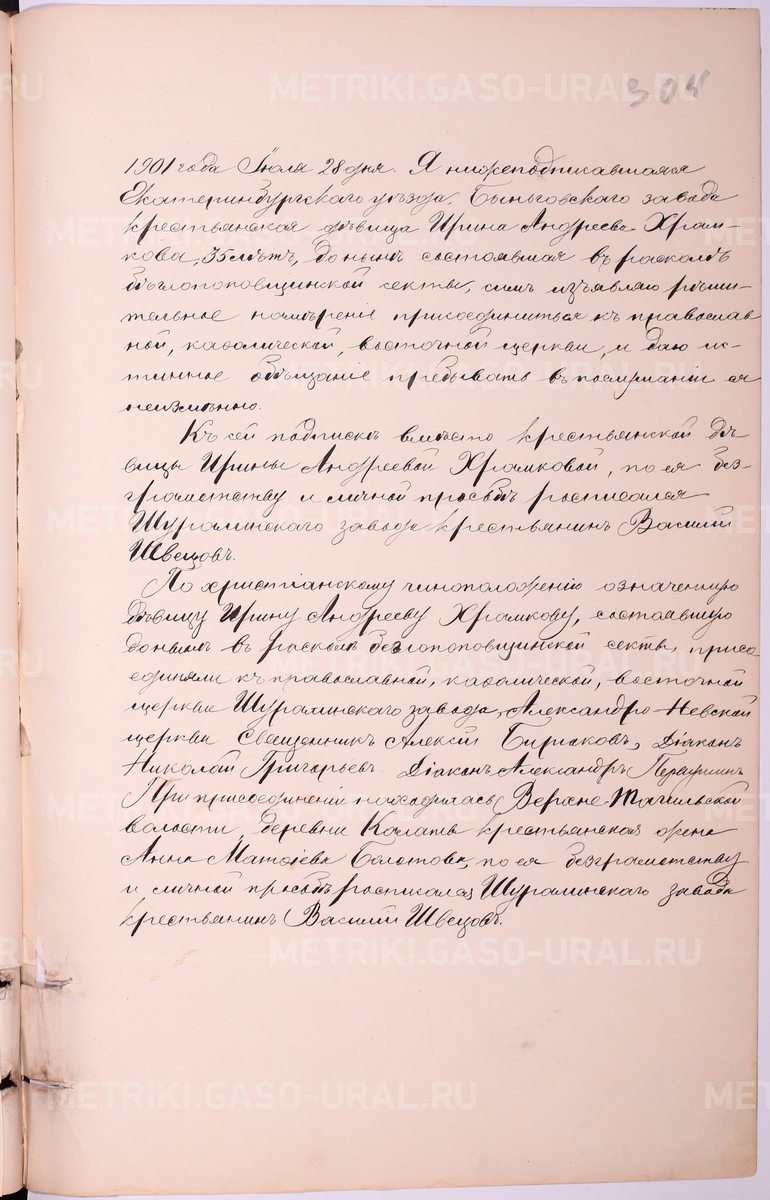 304
1901 года Іюля 28 дня. Я нижеподписавшаяся
Екатеринбургскаго уѣзда, Быньговскаго завода
крестьянская дѣвица Ирина Андреева Храм-
кова, 35 лѣтъ, донынѣ состоявшая въ расколѣ
бѣглопоповщинской секты, симъ изъявляю рѣши-
тельное намѣреніе присоединиться къ православ
ной, каѳолической, восточной церкви, и даю ис-
тинное обѣщаніе пребывать въ послушаніи ея
неизмѣнно.
Къ сей подпискѣ вмѣсто крестьянской дѣ
вицы Ирины Андреевой Храмковой, по ея без-
грамотству и личной просьбѣ росписался
Шуралинскаго завода крестьянинъ Василій
Швецовъ.
По христіанскому чиноположенію означенную
дѣвицу Ирину Андрееву Храмкову, состоявшую
донынѣ въ расколѣ беглопоповщинской секты, присо
единяли къ православной, каѳолической, восточной
церкви Шуралинскаго завода, Александро-Невской
церкви Священникъ Алексій Бирюковъ, Діаконъ
Николай Григорьевъ. Діаконъ Александръ Первушинъ
При присоединеніи находилась Верхне-Тагильской
волости, деревни Калаты крестьянская жена
Анна Матѳіева Болотова, по ея безграмотству
и личной просьбѣ росписался Шуралинскаго завода
крестьянинъ Василій Швецовъ.
METRIKI.GASO-URAL.RU